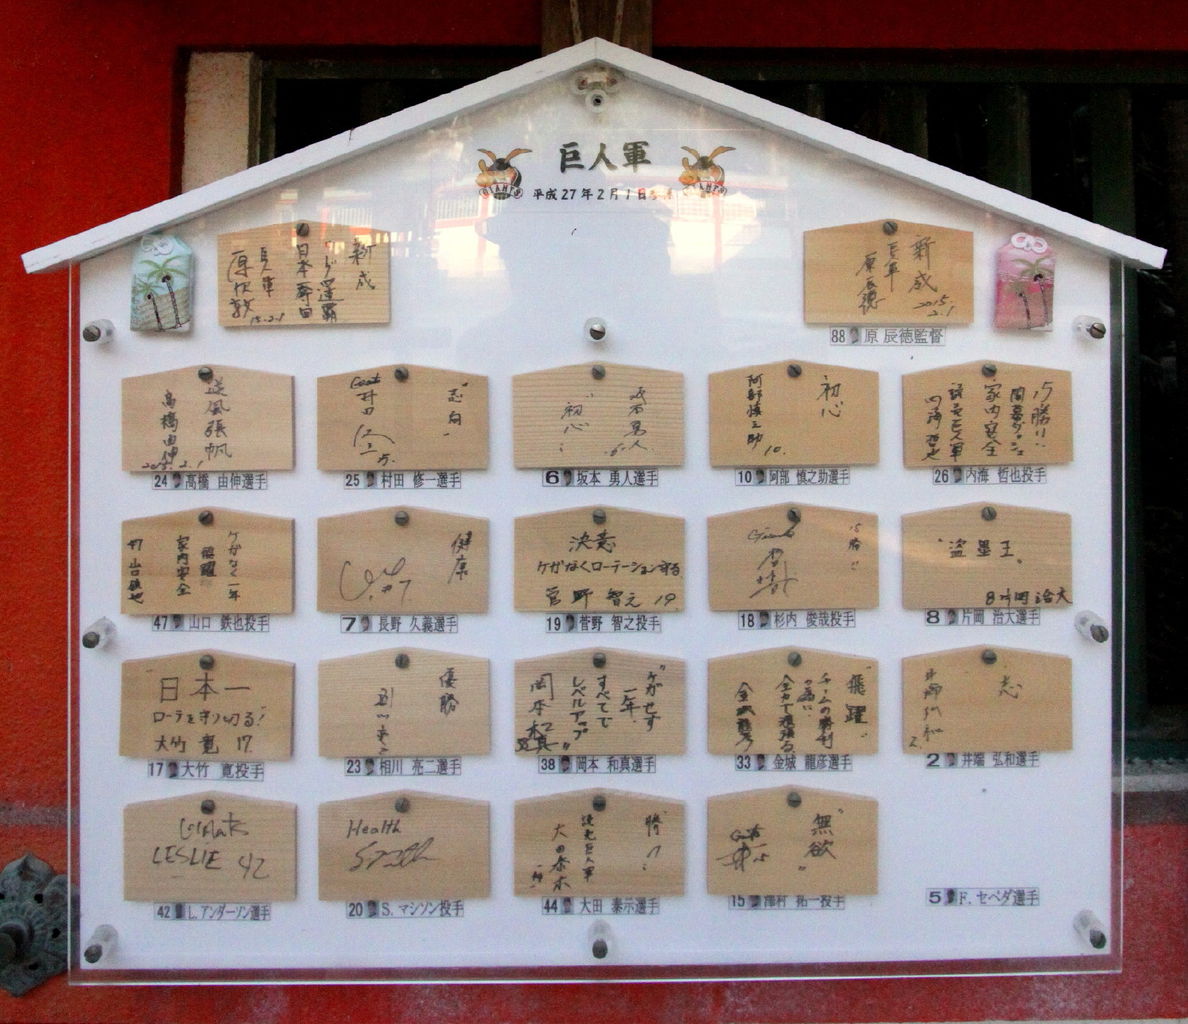 巨人軍
GIANTS
GIANTS
平成27年2月1日
新成
日本奪回
巨人軍
15.2.1
新成
巨人軍
原辰徳
2015.
2.1
88 原 辰徳監督
高橋由伸
24 高橋 由伸選手
志向
村田
25 村田 修一選手
初心
6 坂本 勇人選手
初心
阿部慎之助
10.
10 阿部 慎之助選手
15勝!!
開幕ダッシュ
家内安全
読売巨人軍
内海哲也
26 内海 哲也投手
ケガなく一年
飛躍
家内安全
47 山口鉄也
47 山口 鉄也投手
健康
#7
7 長野 久義選手
決意
ケガなくローテーション守る
菅野 智之 19
19 菅野 智之投手
15勝!!
18 杉内 俊哉投手
"盗塁王"
8 片岡治大
8 片岡 治大選手
日本一
ローテを守り切る!
大竹 寛 17
17 大竹 寛投手
優勝
23 相川 亮二選手
"ケガせず
一年、
すべてで
レベルアップ"
岡本和真
38 岡本 和真選手
"飛躍"
チームの勝利
の為に
全力で頑張る
金城龍彦
33 金城 龍彦選手
志
井端弘和
2.
2 井端 弘和選手
LESLIE 42
42 L.アンダーソン選手
Health
20 S.マシソン投手
勝つ
読売巨人軍
大田泰示
44 大田 泰示選手
"無欲"
15 澤村 拓一投手
5 F. セペダ選手